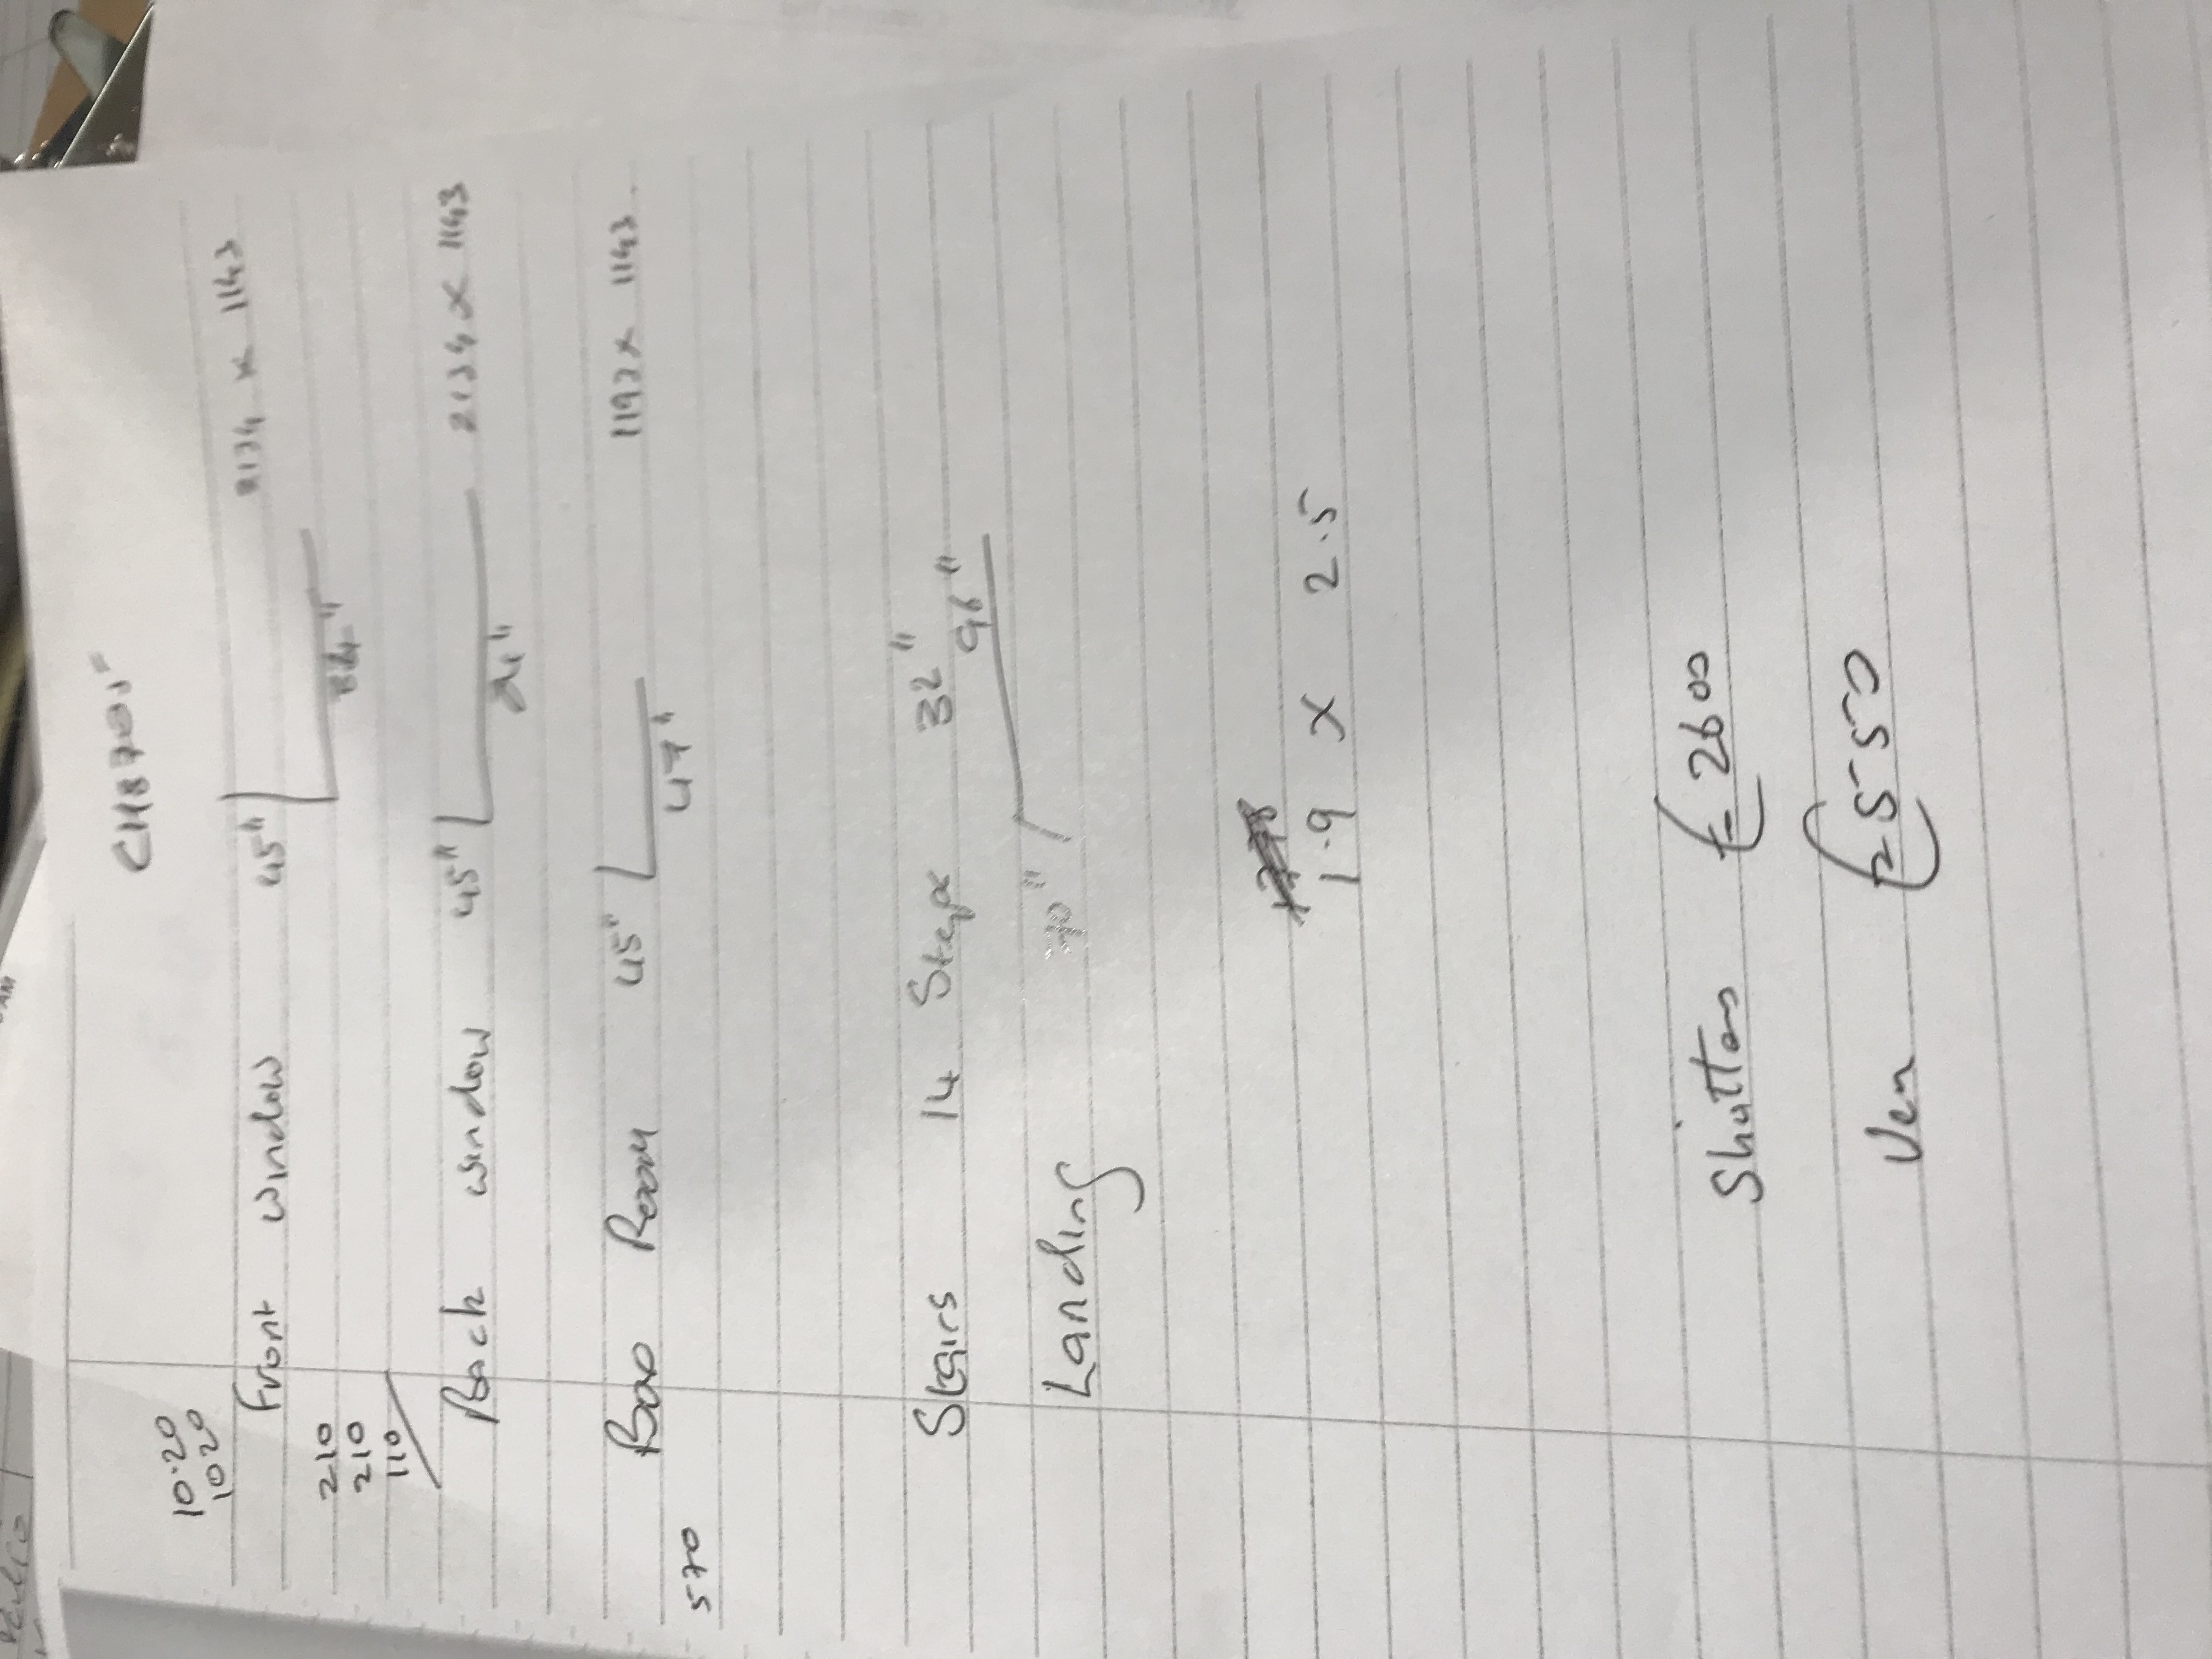 10.20
1020
Front window 45" 84" 2134 x 1143
210
210
110
Back window 45" 2134 x 1143
Box Room 45" 47" 1192 x 1143
570
Stairs 14 Steps 32"
Landing 96"
1.9 x 2.5
Shutters £2600
Ven £550